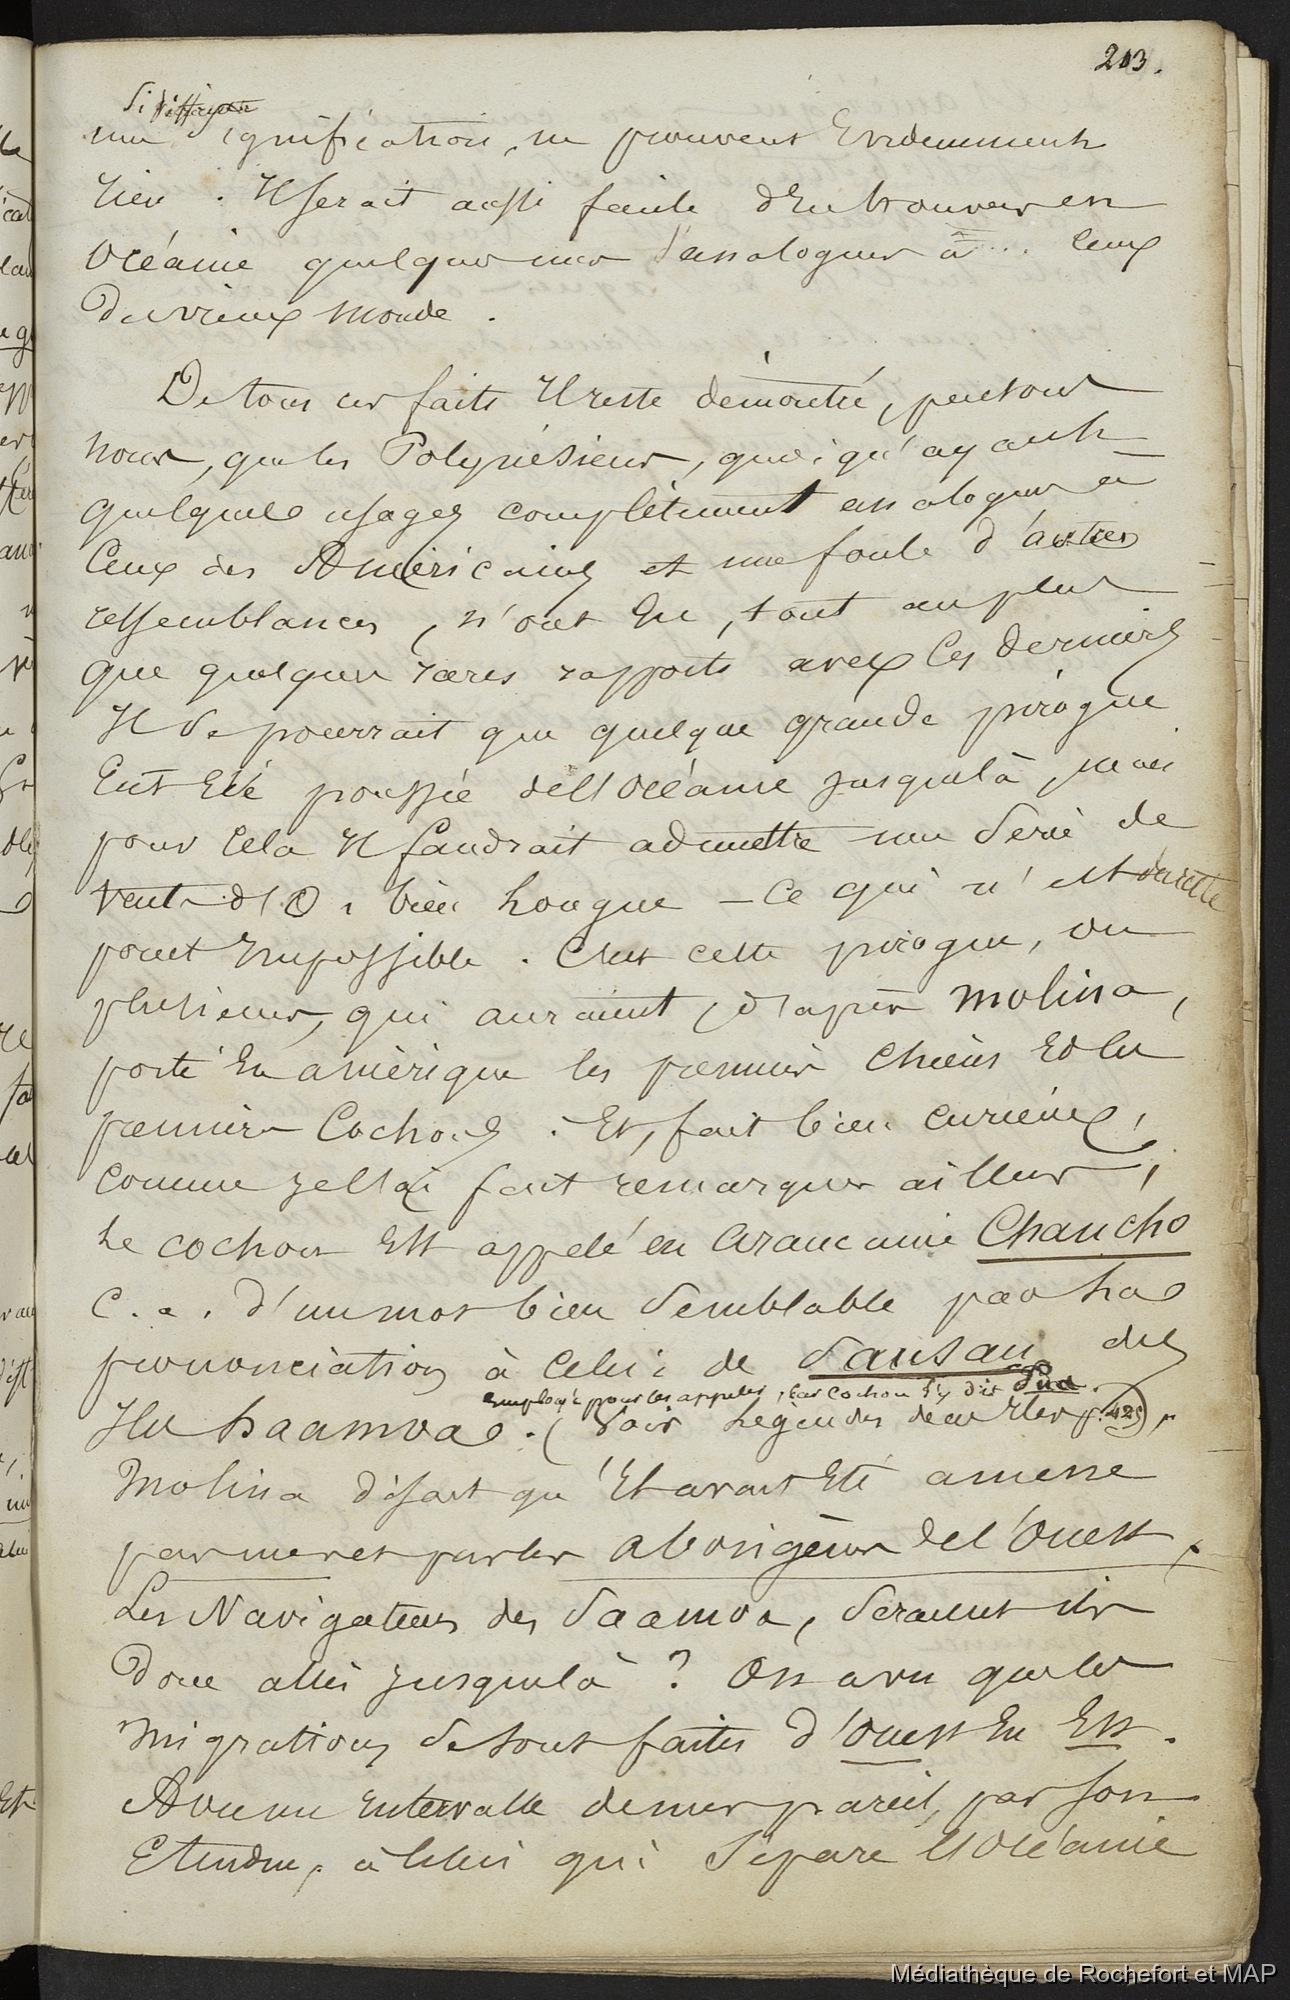 213.
une signification, ne prouvent Evidemment
rien. Il serait aussi facile d'En trouver en
Océanie quelques uns d'analogues à ... ceux
du vieux monde.
De tous ces faits Il reste démontré, pensons
nous, que les Polynésiens, quoiqu'ayant
quelques usages complètement analogues à
Ceux des Américains et une foule d'autres
ressemblances, n'ont Eu, tout au plus
que quelques rares rapports avec Ces derniers
Il Se pourrait que quelque grande pirogue
Eut Eté poussée de l'Océanie jusque là, mais
pour Cela Il faudrait admettre une Serie de
Vents d'O. bien longue — Ce qui n'est
point Impossible. C'est cette pirogue, ou
plusieurs, qui auraient, d'après Molina,
porté En amérique les premiers Chiens Et les
premiers Cochons. Et, fait bien curieux,
comme je l'ai fait remarquer ailleurs,
Le cochon Est appelé en Araucanie Chancho
C. a. d'un mot bien Semblable par la
prononciation à Celui de Sansan des
employé pour les appeler, car cochon s'y dit Pua.
Iles Saamoa. (Voir Légendes de ces Iles p. 425).
Molina disait qu'Il avait Eté amené
par mer et par les aborigènes de l'Ouest.
Les Navigateurs des Saamoa, Seraient ils
donc allés jusque là ? On a vu que les
migrations Se sont faites d'Ouest En Est.
Aucun Intervalle de mer pareil, par son
Etendue, à Celui qui Sépare l'Océanie
Médiathèque de Rochefort et MAP